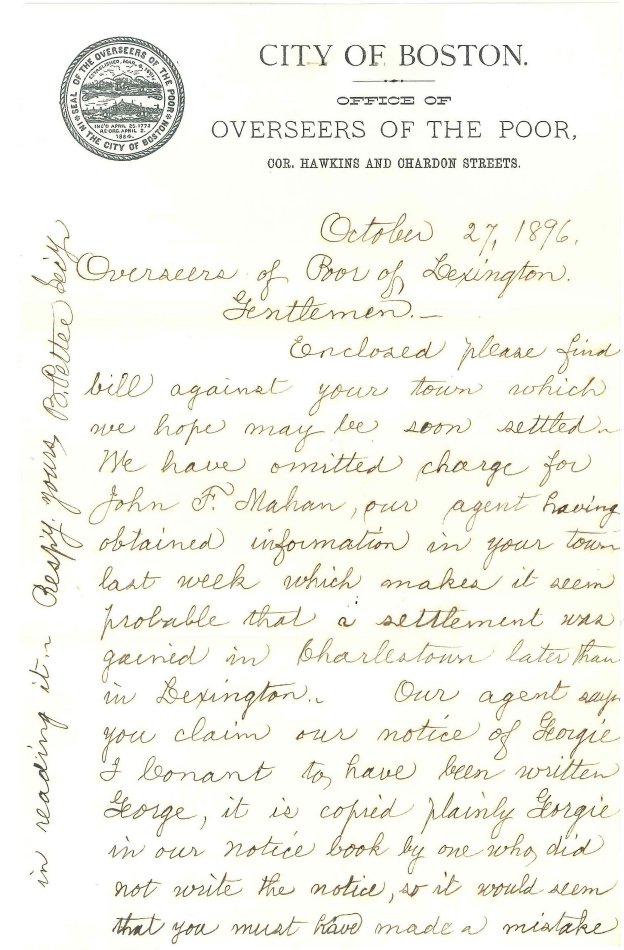 CITY OF BOSTON.
OFFICE OF
OVERSEERS OF THE POOR,
COR. HAWKINS AND CHARDON STREETS.
SEAL OF THE OVERSEERS OF THE POOR
IN THE CITY OF BOSTON
INC'D APRIL 25.1772
RE-ORG. APRIL 2.
1864.
October 27, 1896.
Overseers of Poor of Lexington.
Gentlemen.—
Enclosed please find
bill against your town which
we hope may be soon settled.
We have omitted charge for
John F. Mahan, our agent having
obtained information in your town
last week which makes it seem
probable that a settlement was
gained in Charlestown later than
in Lexington. Our agent says
you claim our notice of Georgie
I Conant to have been written
George, it is copied plainly Georgie
in our notice book by one who did
not write the notice, so it would seem
that you must have made a mistake
in reading it. Resp'y. yours, B. Pettee Sec'y